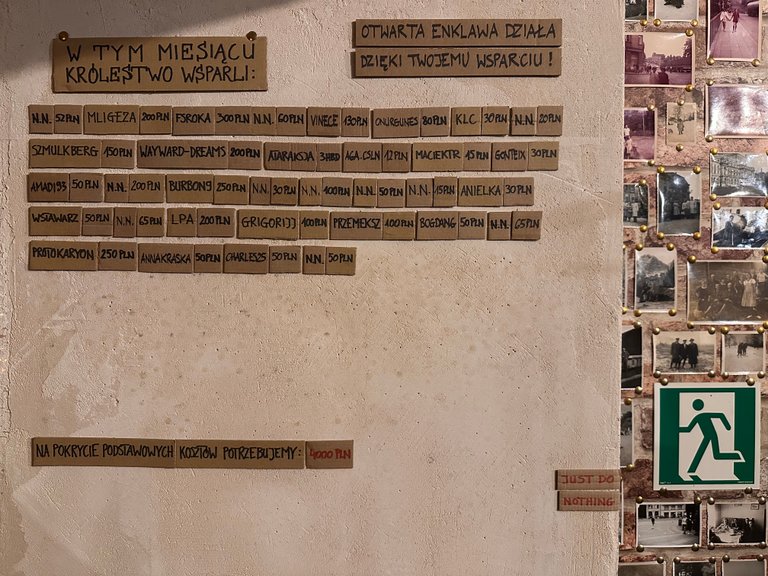 W TYM MIESIĄCU
KRÓLESTWO WSPARLI:
OTWARTA ENKLAWA DZIAŁA
DZIĘKI TWOJEMU WSPARCIU!
N.N. 52PLN MLIGEZA 200PLN FSROKA 300PLN N.N. 60PLN VINECE 130PLN ONURGUNES 80PLN KLC 30PLN N.N. 20PLN
SZMULKBERG 150PLN WAYWARD-DREAMS 200PLN ATARAKSJA AGA.CSLN 12PLN MACIEKTR 45PLN GONTEIX 30PLN
AMADI93 50PLN N.N. 200PLN BURBON9 250PLN N.N. 30PLN N.N. 100PLN N.N. 50PLN N.N. 15PLN ANIELKA 30PLN
WSTAWARZ 50PLN N.N. 65PLN LPA 200PLN GRIGORIJJ 100PLN PRZEMEKSZ 100PLN BOGDANG 50PLN N.N. 65PLN
PROTOKARYON 250PLN ANNAKRASKA 50PLN CHARLES25 50PLN N.N. 50PLN
NA POKRYCIE PODSTAWOWYCH KOSZTÓW POTRZEBUJEMY: 4000 PLN
JUST DO
NOTHING